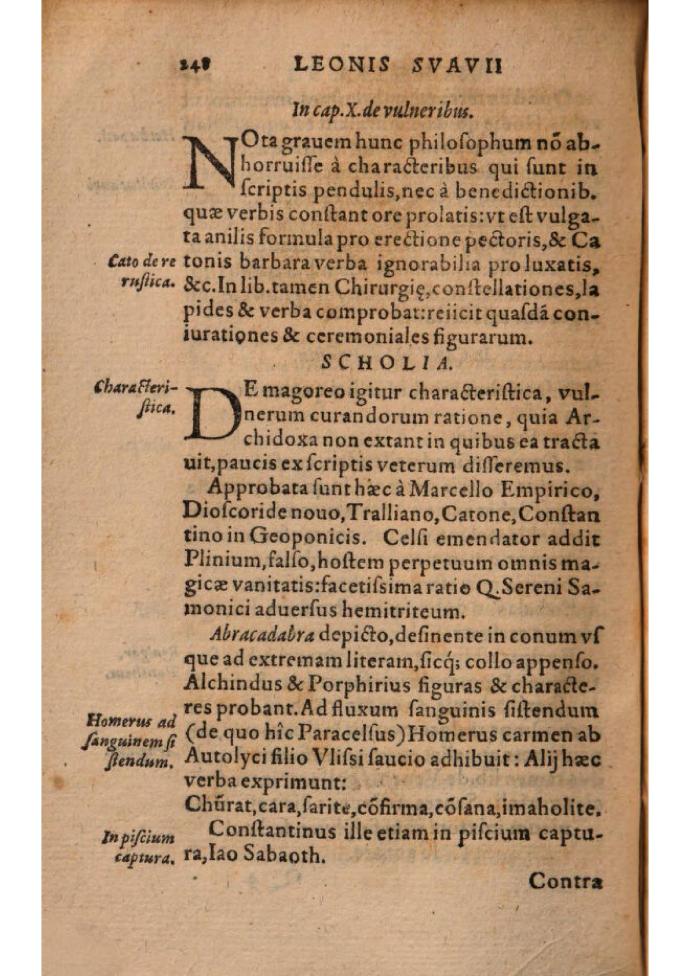 248 LEONIS SVAVII
In cap.X.de vulneribus.
NOta grauem hunc philoſophum nō ab-
horruiſſe à characteribus qui ſunt in
ſcriptis pendulis,nec à benedictionib.
quæ verbis conſtant ore prolatis:vt eſt vulga-
ta anilis formula pro erectione pectoris,& Ca
Cato de re
ruſtica.
tonis barbara verba ignorabilia pro luxatis,
&c.In lib.tamen Chirurgię,conſtellationes,la
pides & verba comprobat:reiicit quaſdā con-
iurationes & ceremoniales figurarum.
SCHOLIA.
Characteri-
ſtica.
DE magoreo igitur characteriſtica, vul-
nerum curandorum ratione, quia Ar-
chidoxa non extant in quibus ea tracta
uit,paucis ex ſcriptis veterum diſſeremus.
Approbata ſunt hæc à Marcello Empirico,
Dioſcoride nouo,Tralliano,Catone,Conſtan
tino in Geoponicis. Celſi emendator addit
Plinium,falſo,hoſtem perpetuum omnis ma-
gicæ vanitatis:facetiſsima ratio Q.Sereni Sa-
monici aduerſus hemitriteum.
Abracadabra depicto,deſinente in conum vſ
que ad extremam literam,ſicq; collo appenſo.
Alchindus & Porphirius figuras & characte-
res probant.Ad fluxum ſanguinis ſiſtendum
Homerus ad
ſanguinem ſi
ſtendum.
(de quo hîc Paracelſus)Homerus carmen ab
Autolyci filio Vliſsi ſaucio adhibuit: Alij hæc
verba exprimunt:
Chūrat,cara,ſarite,cōfirma,cōſana,imaholite.
In piſcium
captura.
Conſtantinus ille etiam in piſcium captu-
ra,Iao Sabaoth.
Contra